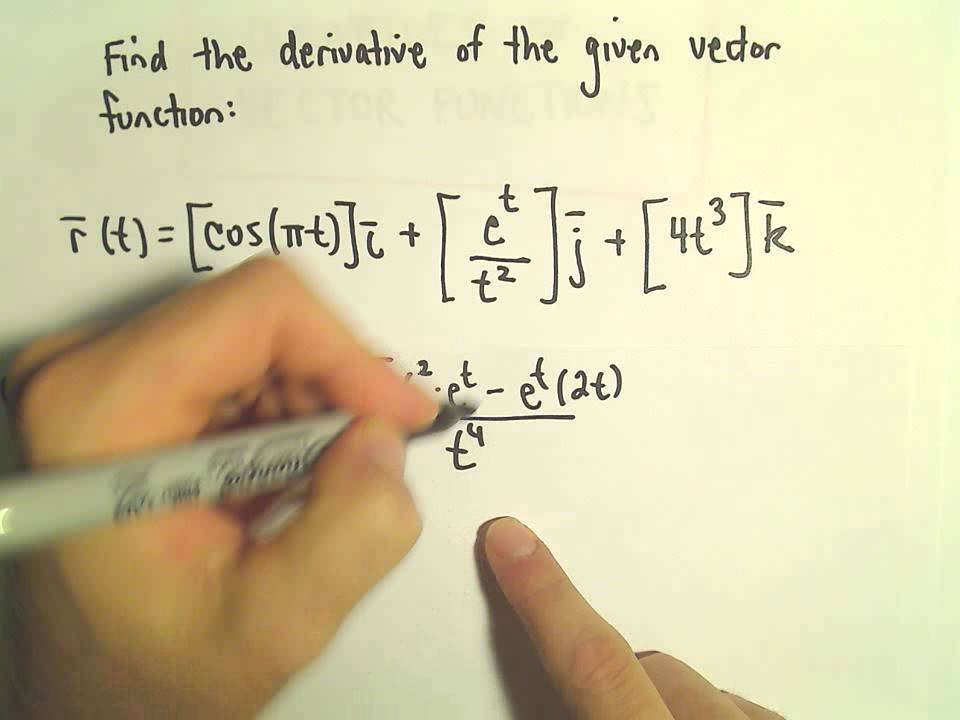 Find the derivative of the given vector
function:
r̄(t) = [cos(πt)]i̅ + [e^t/t²]j̅ + [4t³]k̅
² · e^t − e^t(2t)
t⁴